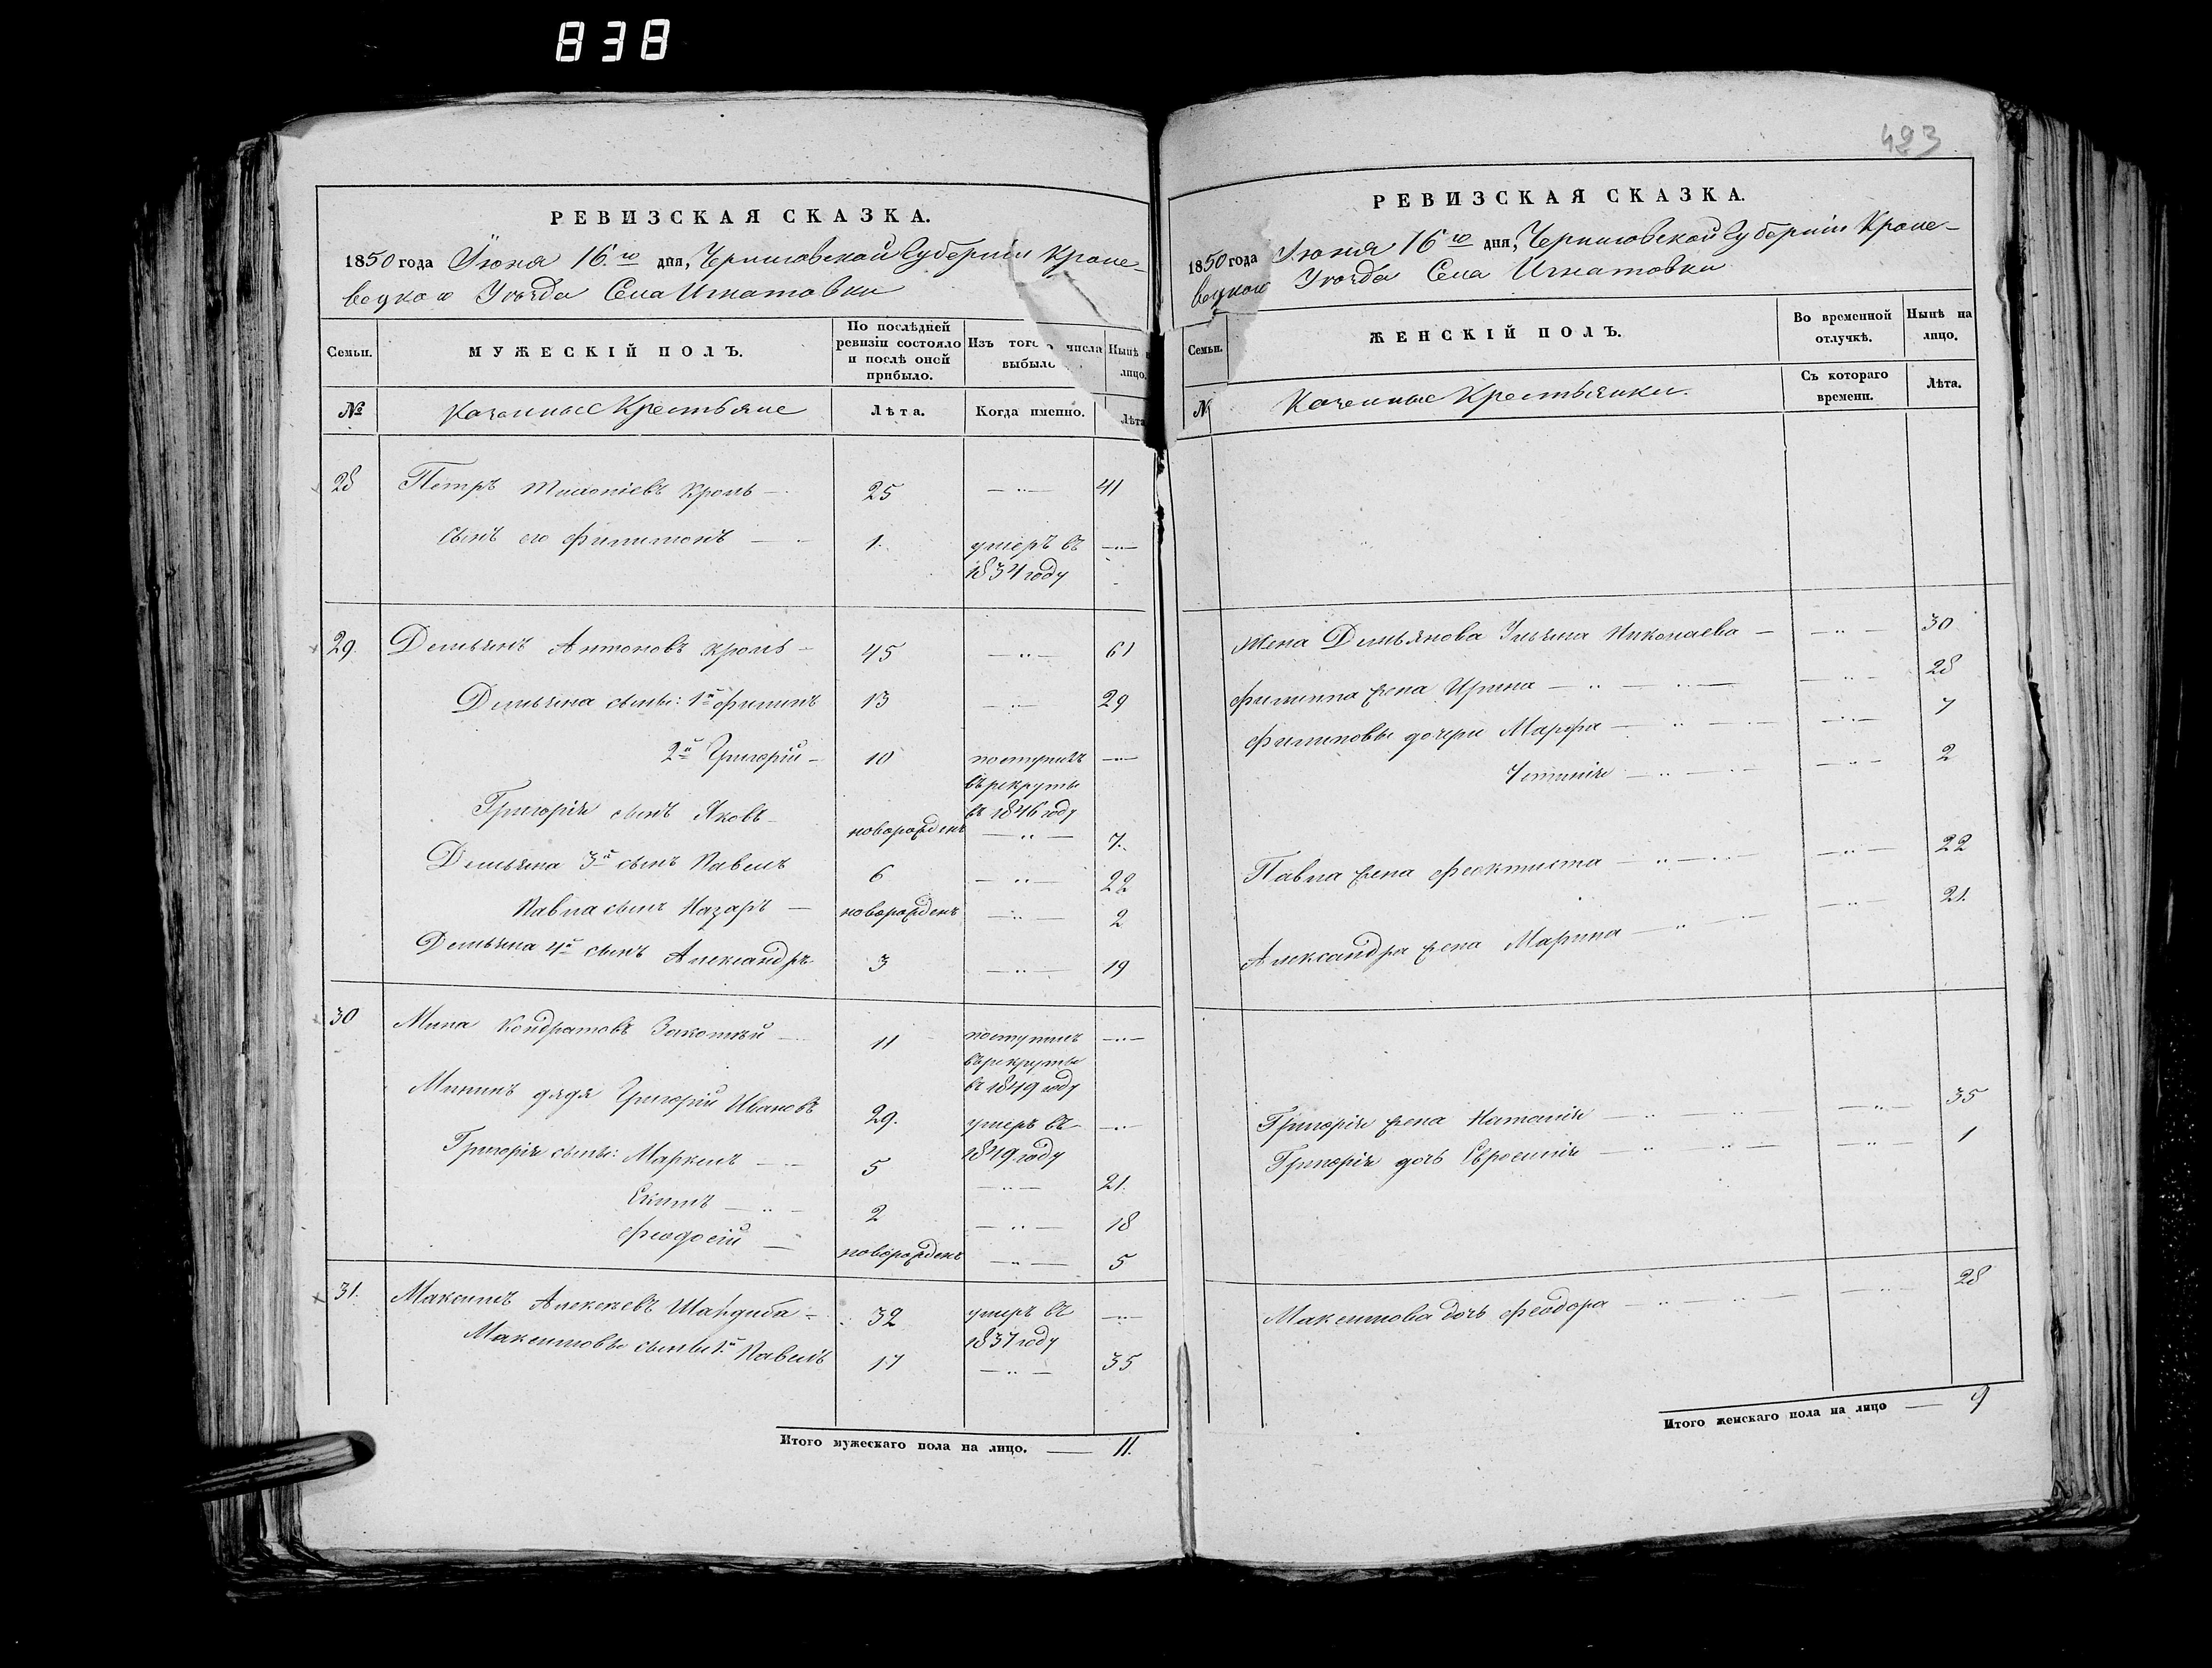 838
РЕВИЗСКАЯ СКАЗКА.
1850 года Іюня 16го дня, Черниговской Губерніи Кроле-
вецкого Уѣзда Села Игнатовки
Семьи.
МУЖЕСКІЙ ПОЛЪ.
По послѣдней ревизіи состояло и послѣ оной прибыло.
Изъ того числа выбыло
Нынѣ лицо.
№
Казенные Крестьяне
Лѣта.
Когда именно.
Лѣта
28 Петръ Кроль — 25 — 41
сынъ его Филимонъ — 1. умеръ въ —
1834 году
29 Демьянъ Антоновъ Кроль — 45 — 61
Демьяна сыны: 1й Филипъ 13 — 29
2й Григорій — 10 поступилъ —
въ рекруты
въ 1846 году
Григорія сынъ Яковъ новорожденъ — 7.
Демьяна 3й сынъ Павелъ 6 — 22
Павла сынъ Назаръ — новорожденъ — 2
Демьяна 4й сынъ Александръ 3 — 19
30 Мина Кондратовъ — 11 поступилъ —
въ рекруты
въ 1849 году
Мининъ дядя Григорій Ивановъ 29. умеръ въ —
1849 году
Григорія сыны: Маркелъ — 5 — 21.
— 2 — 18
Феодосій — новорожденъ — 5
31. Максимъ Алексѣевъ — 32 умеръ въ —
1837 году
Максимовы сыны 1й Павелъ 17 — 35
Итого мужескаго пола на лицо. — 11.
423
РЕВИЗСКАЯ СКАЗКА.
1850 года Іюня 16го дня, Черниговской Губерніи Кроле-
вецкого Уѣзда Села Игнатовки
Семьи.
ЖЕНСКІЙ ПОЛЪ.
Во временной отлучкѣ.
Нынѣ на лицо.
Казенные Крестьянки.
Съ котораго времени.
Лѣта.
Жена Демьянова Ульяна Николаева — — 30
Филиппа жена Ирина — — 28
Филиповы дочери Марфа — — 7
— — 2
Павла жена Феоктиста — — 22
Александра жена Марина — — 21.
Григорія жена Наталія — — 35
Григорія дочь Евросинія — — 1
Максимова дочь Феодора — — 28
Итого женскаго пола на лицо — 9